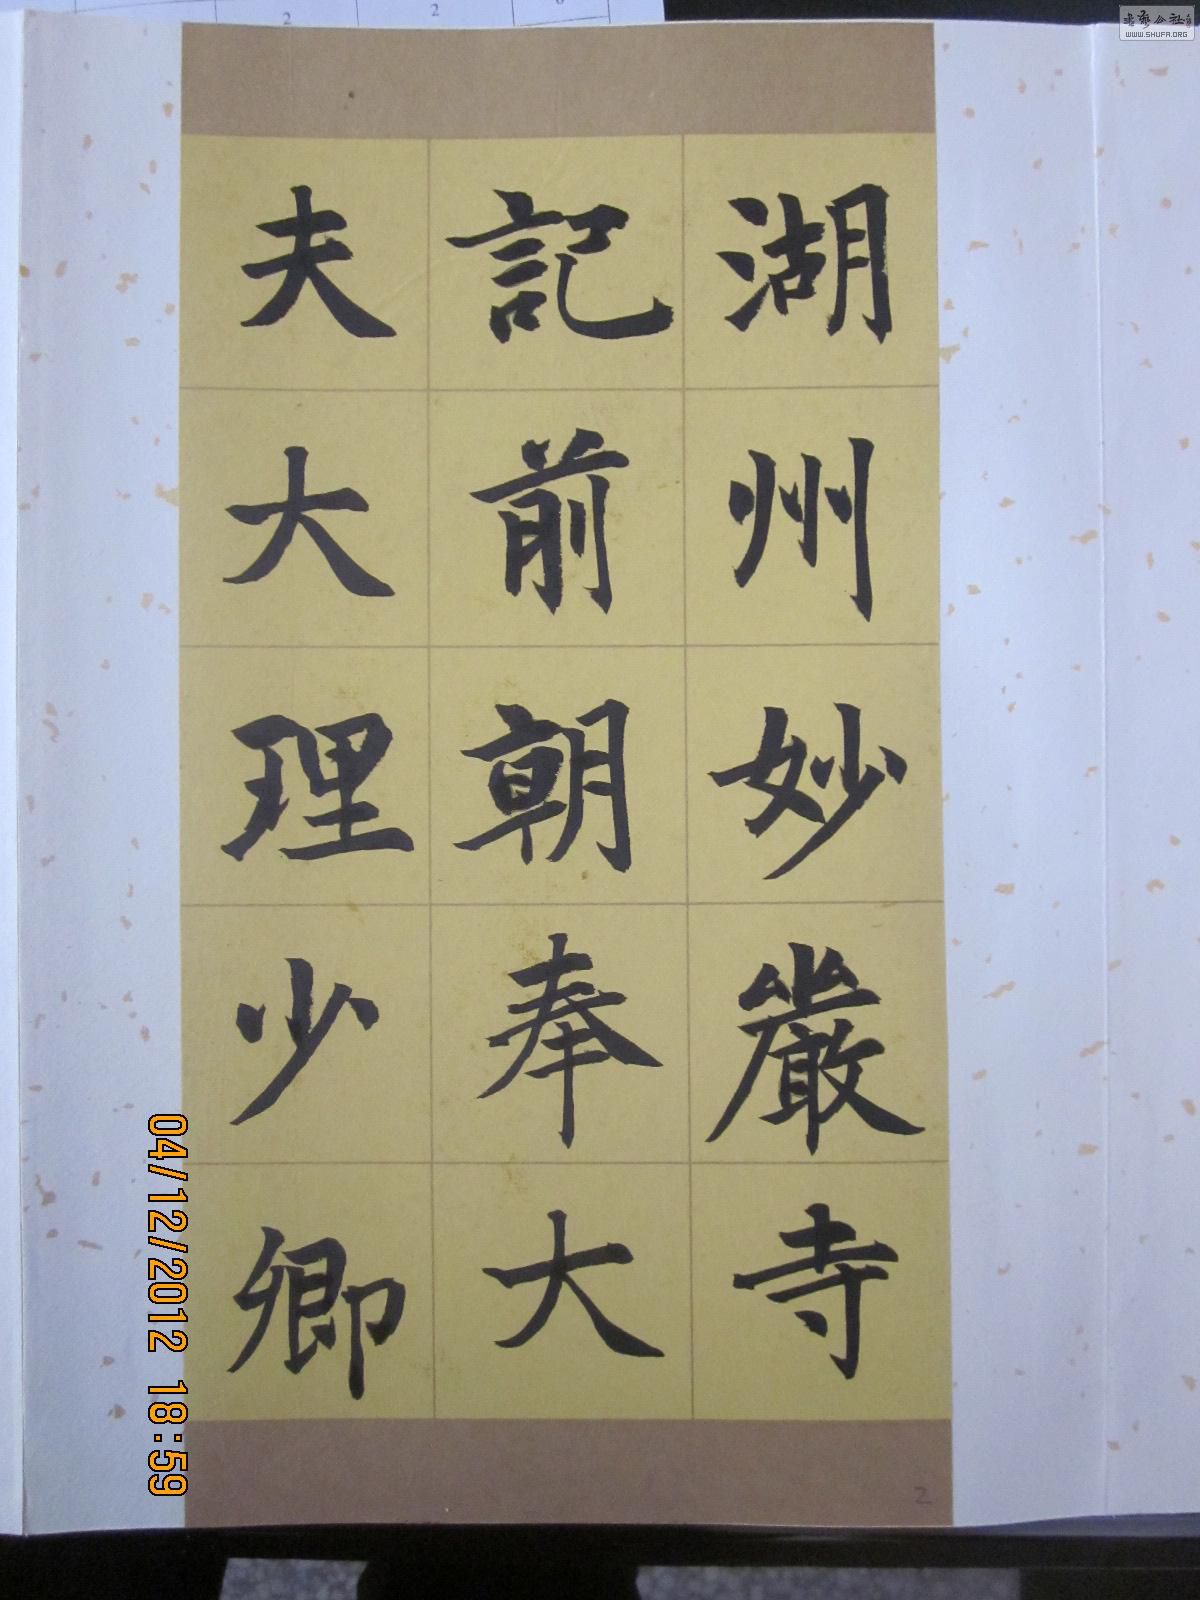 湖州妙嚴寺
記前朝奉大
夫大理少卿
2
04/12/2012 18:59
WWW.SHUFA.ORG
2
2